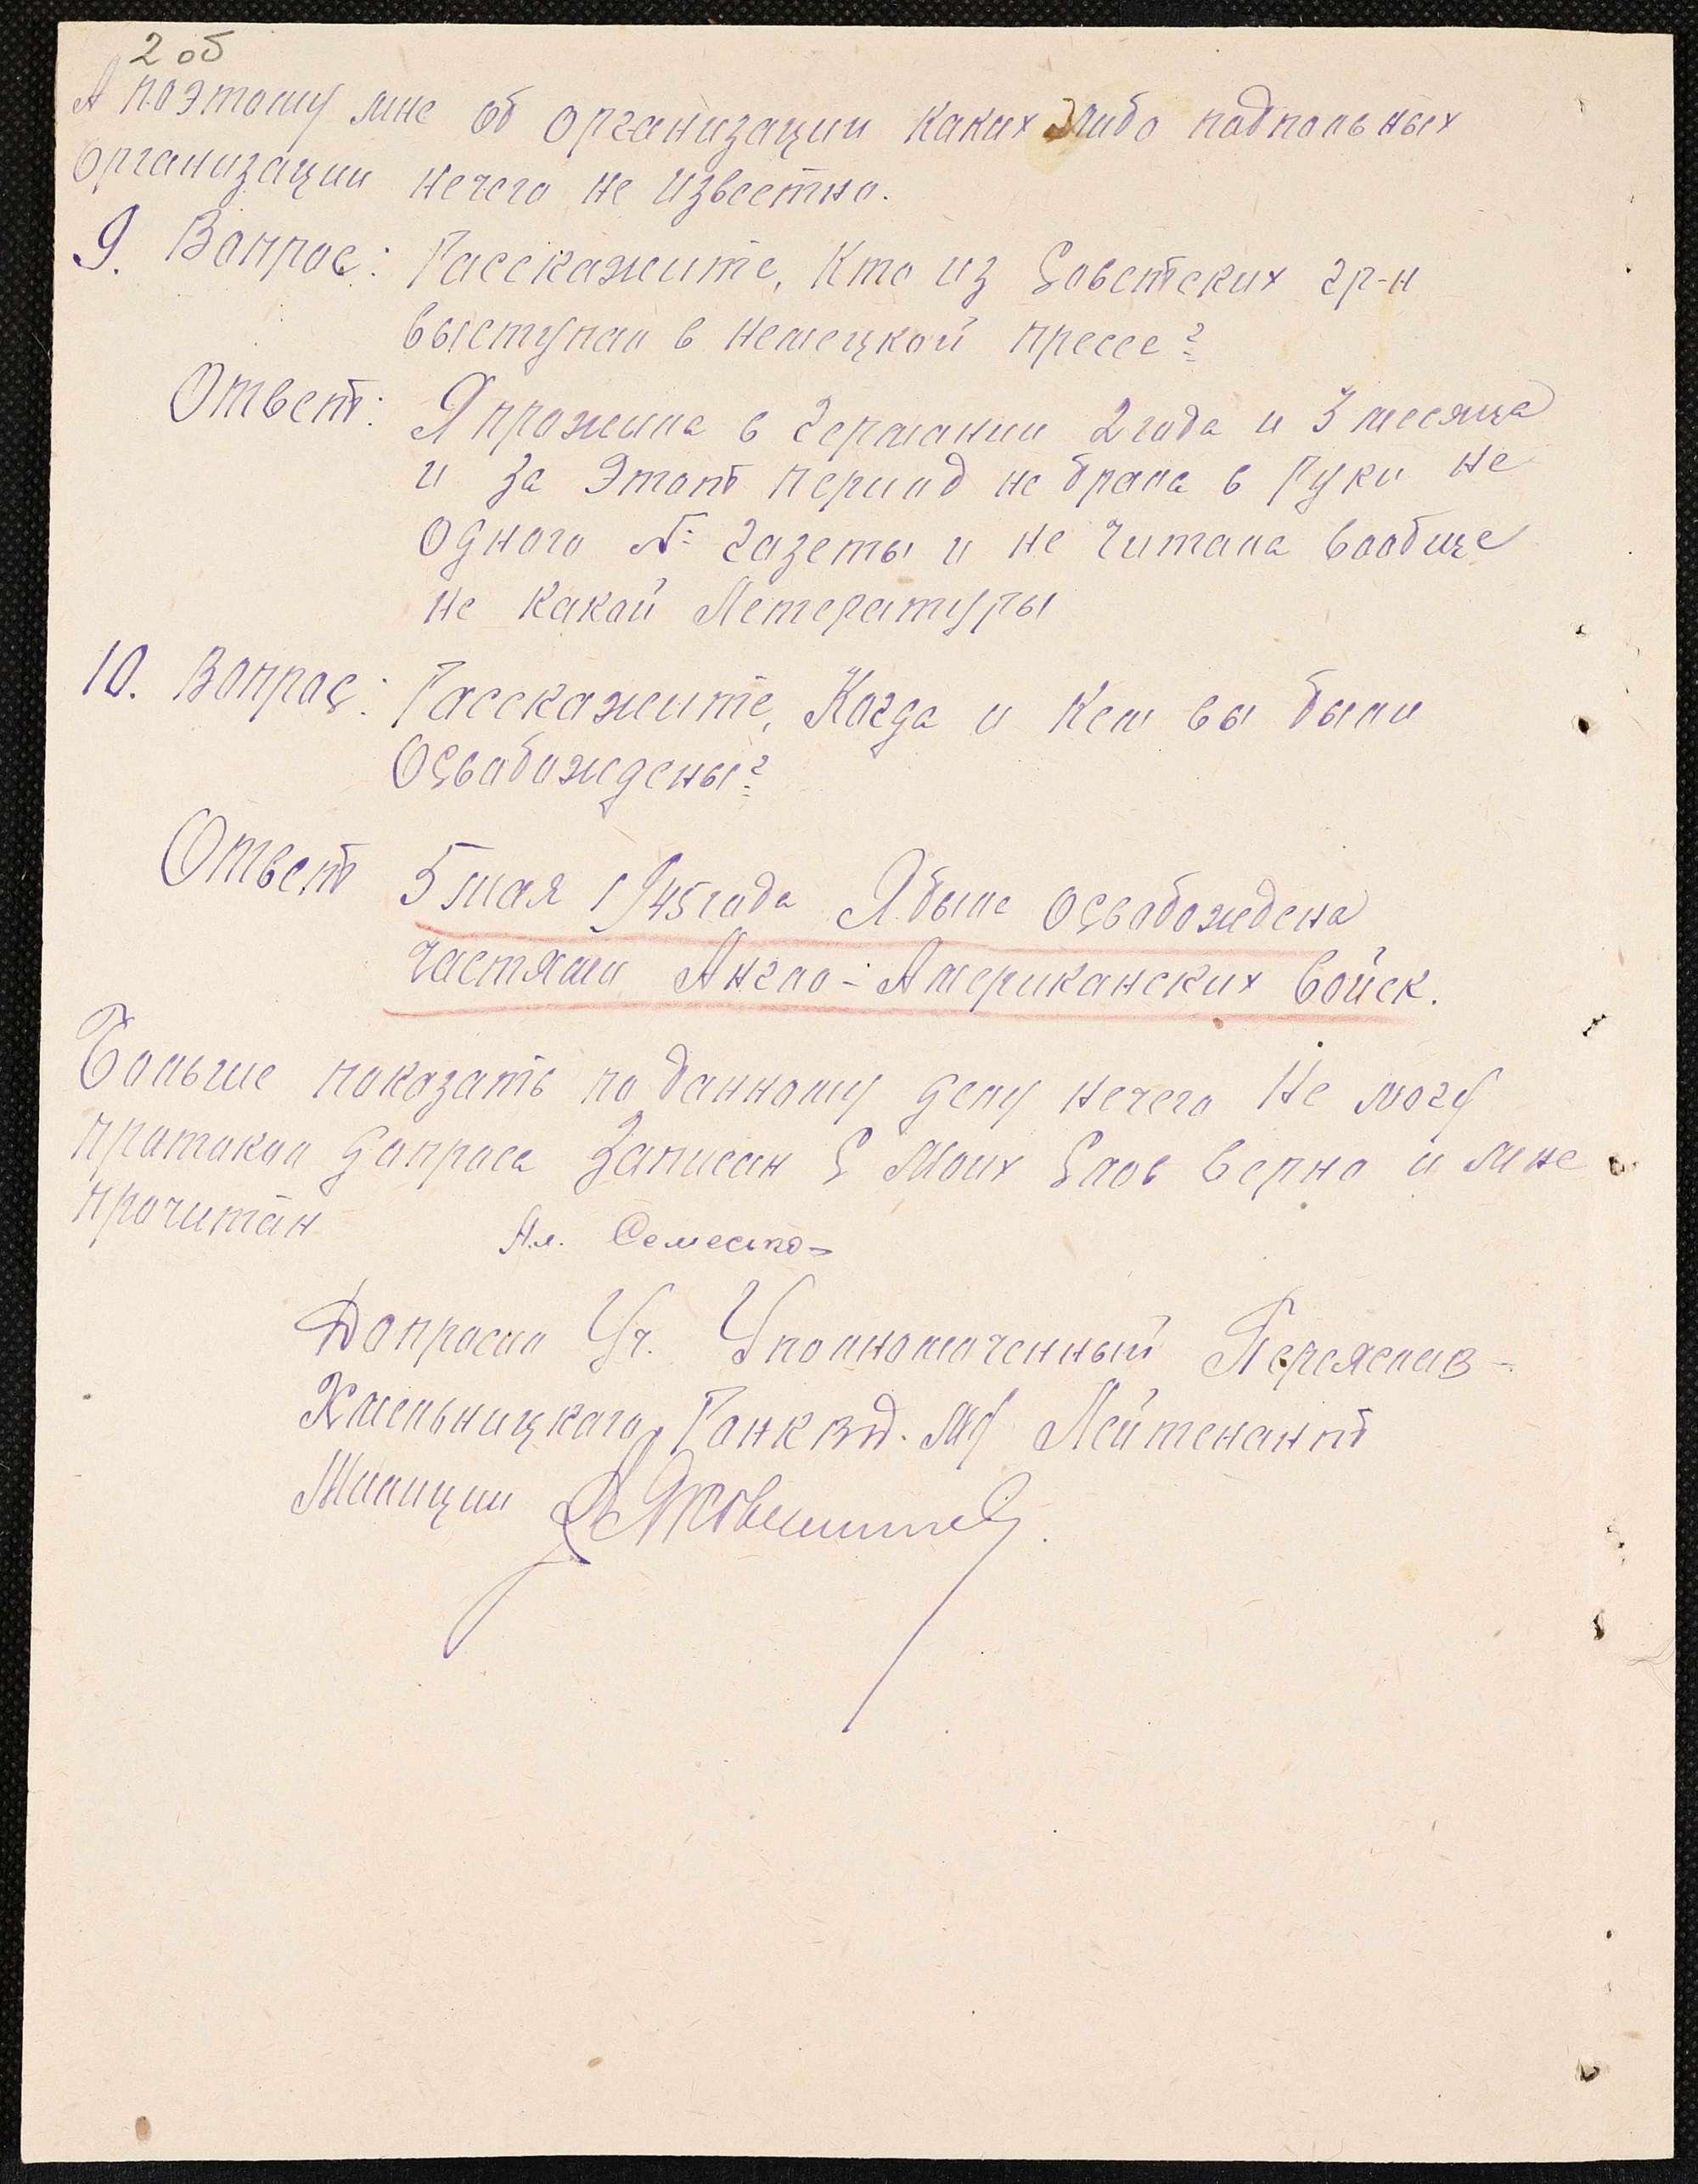 2 об
А поэтому мне об организации каких либо подпольных
организации нечего не известно.
9. Вопрос: Расскажите, Кто из Советских гр-н
выступал в немецкой прессе?
Ответ: Я прожила в Германии 2 года и 3 месяца
и за Этот период не брала в Руки не
одного № газеты и не Читала вообще
не какой Летературы
10. Вопрос: Расскажите, Когда и Кем вы были
Освобождены?
Ответ 5 мая 1945 года Я была освобождена
частями Англо-Американских войск.
Больше показать по данному делу нечего Не могу
протокол допроса Записан С Моих Слов верно и мне
прочитан
Допросил Уч. Уполномоченный Переяслав-
Хмельницкого РОНКВД. Мл Лейтенант
Милиции